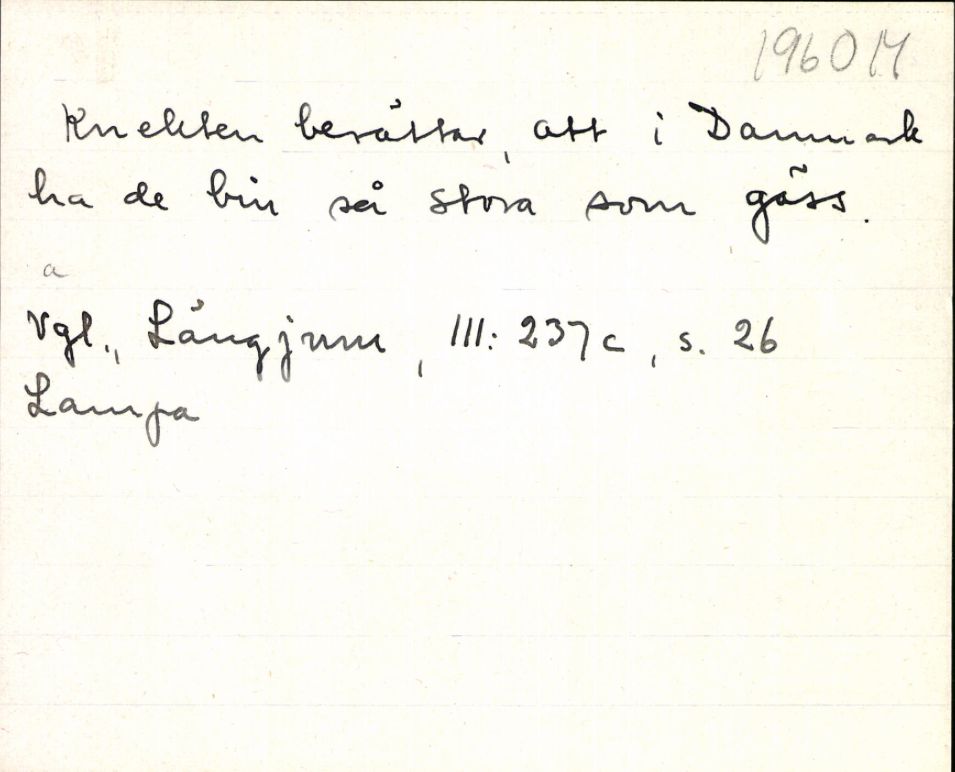 1960 M
Knekten berättar, att i Danmark
ha de bin så stora som gäss.
a
Vgl., Långjum, III: 237c, s. 26
Lampa